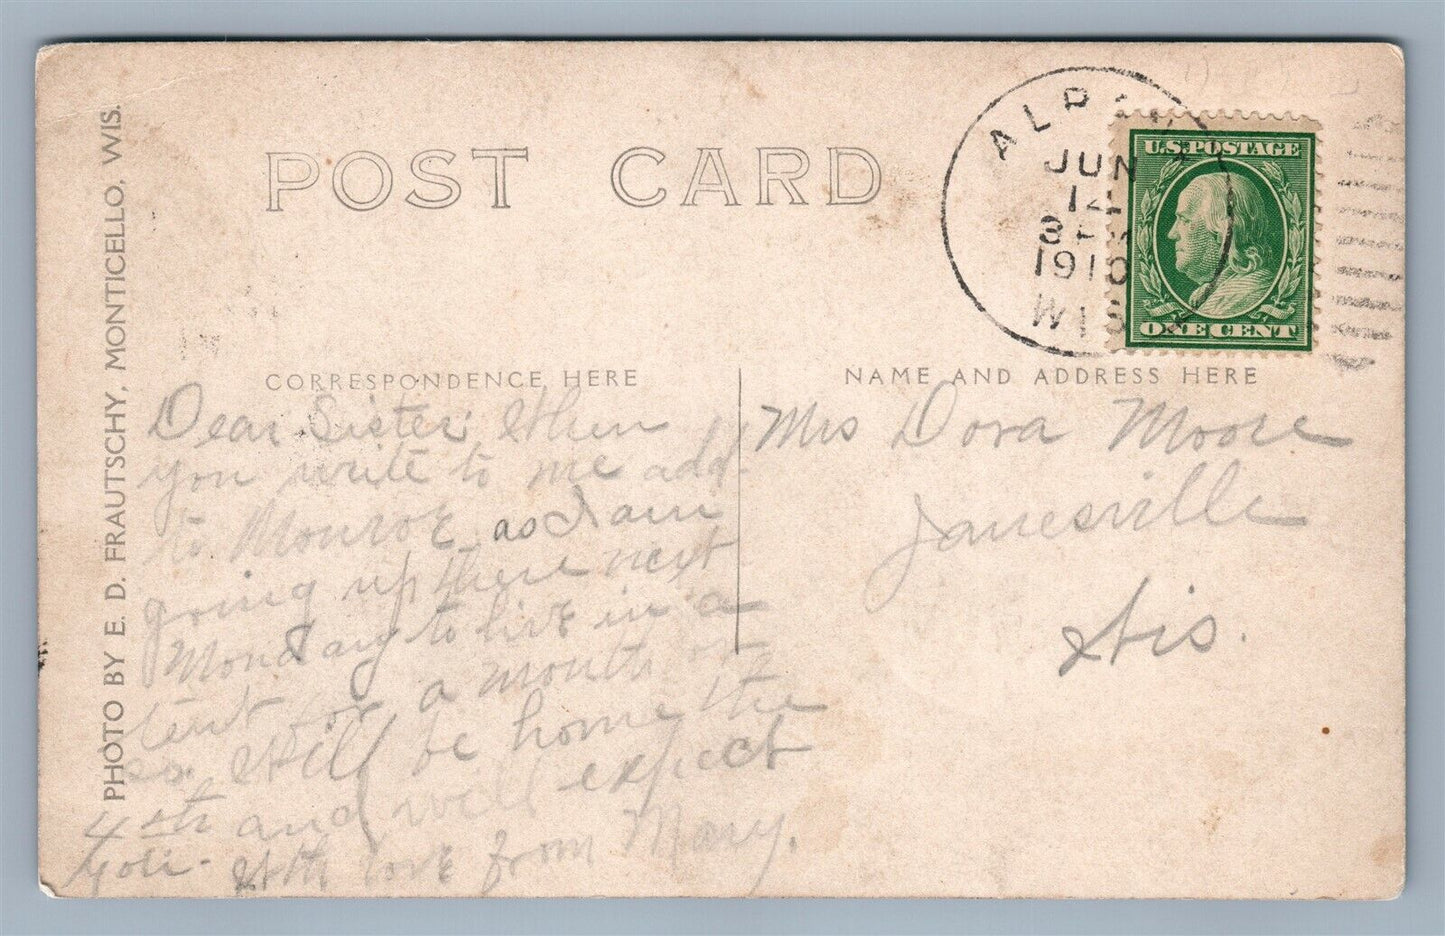 POST CARD
ALP
JUN
14
3 PM
1910
WIS
U.S.POSTAGE
ONE CENT
PHOTO BY E. D. FRAUTSCHY, MONTICELLO, WIS.
CORRESPONDENCE HERE
NAME AND ADDRESS HERE
Dear Sister: When
you write to me add-
to Monroe as I am
going up there next
Monday to live in a
tent for a month or
so. Will be home the
4th and will expect
you. With love from Mary.
Mrs Dora Moore
Janesville
Wis.